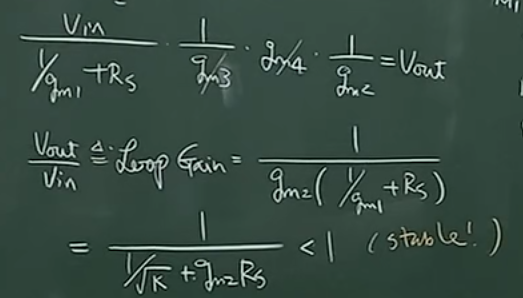 Vin / (1/gm1 + Rs) · 1/gm3 · gm4 · 1/gm2 = Vout
Vout/Vin ≜ Loop Gain = 1 / (gm2 ( 1/gm1 + Rs ))
= 1 / (1/√K + gm2 Rs) < 1 (stable!)